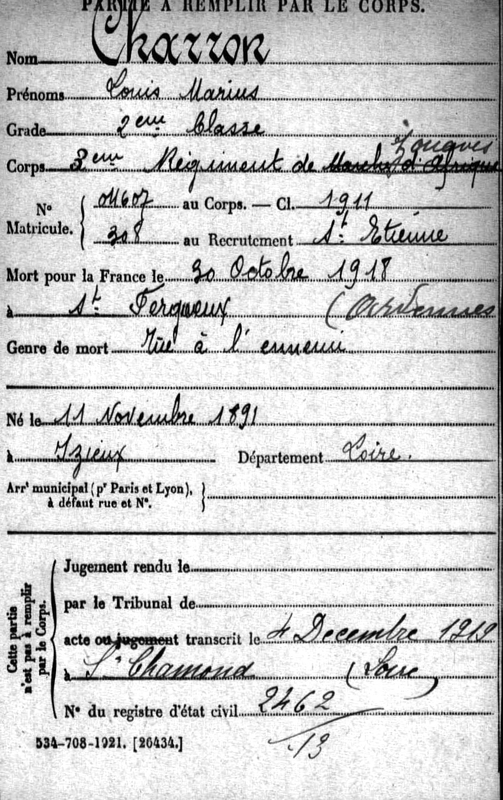 PARTIE A REMPLIR PAR LE CORPS.
Nom Charron
Prénoms Louis Marius
Grade 2eme Classe
Zouaves
Corps 3eme Régiment de Marche d'Afrique
N° Matricule. 04607 au Corps. — Cl. 1911
308 au Recrutement St. Etienne
Mort pour la France le 30 Octobre 1918
à St. Fergueux (Ardennes
Genre de mort Tué à l'ennemi
Né le 11 Novembre 1891
à Izieux Département Loire.
Arrt municipal (pr Paris et Lyon),
à défaut rue et N°.
Cette partie
n'est pas à remplir
par le Corps.
Jugement rendu le
par le Tribunal de
acte ou jugement transcrit le 4 Decembre 1919
à St Chamond (Loire)
N° du registre d'état civil 2462
13
534-708-1921. [26434.]